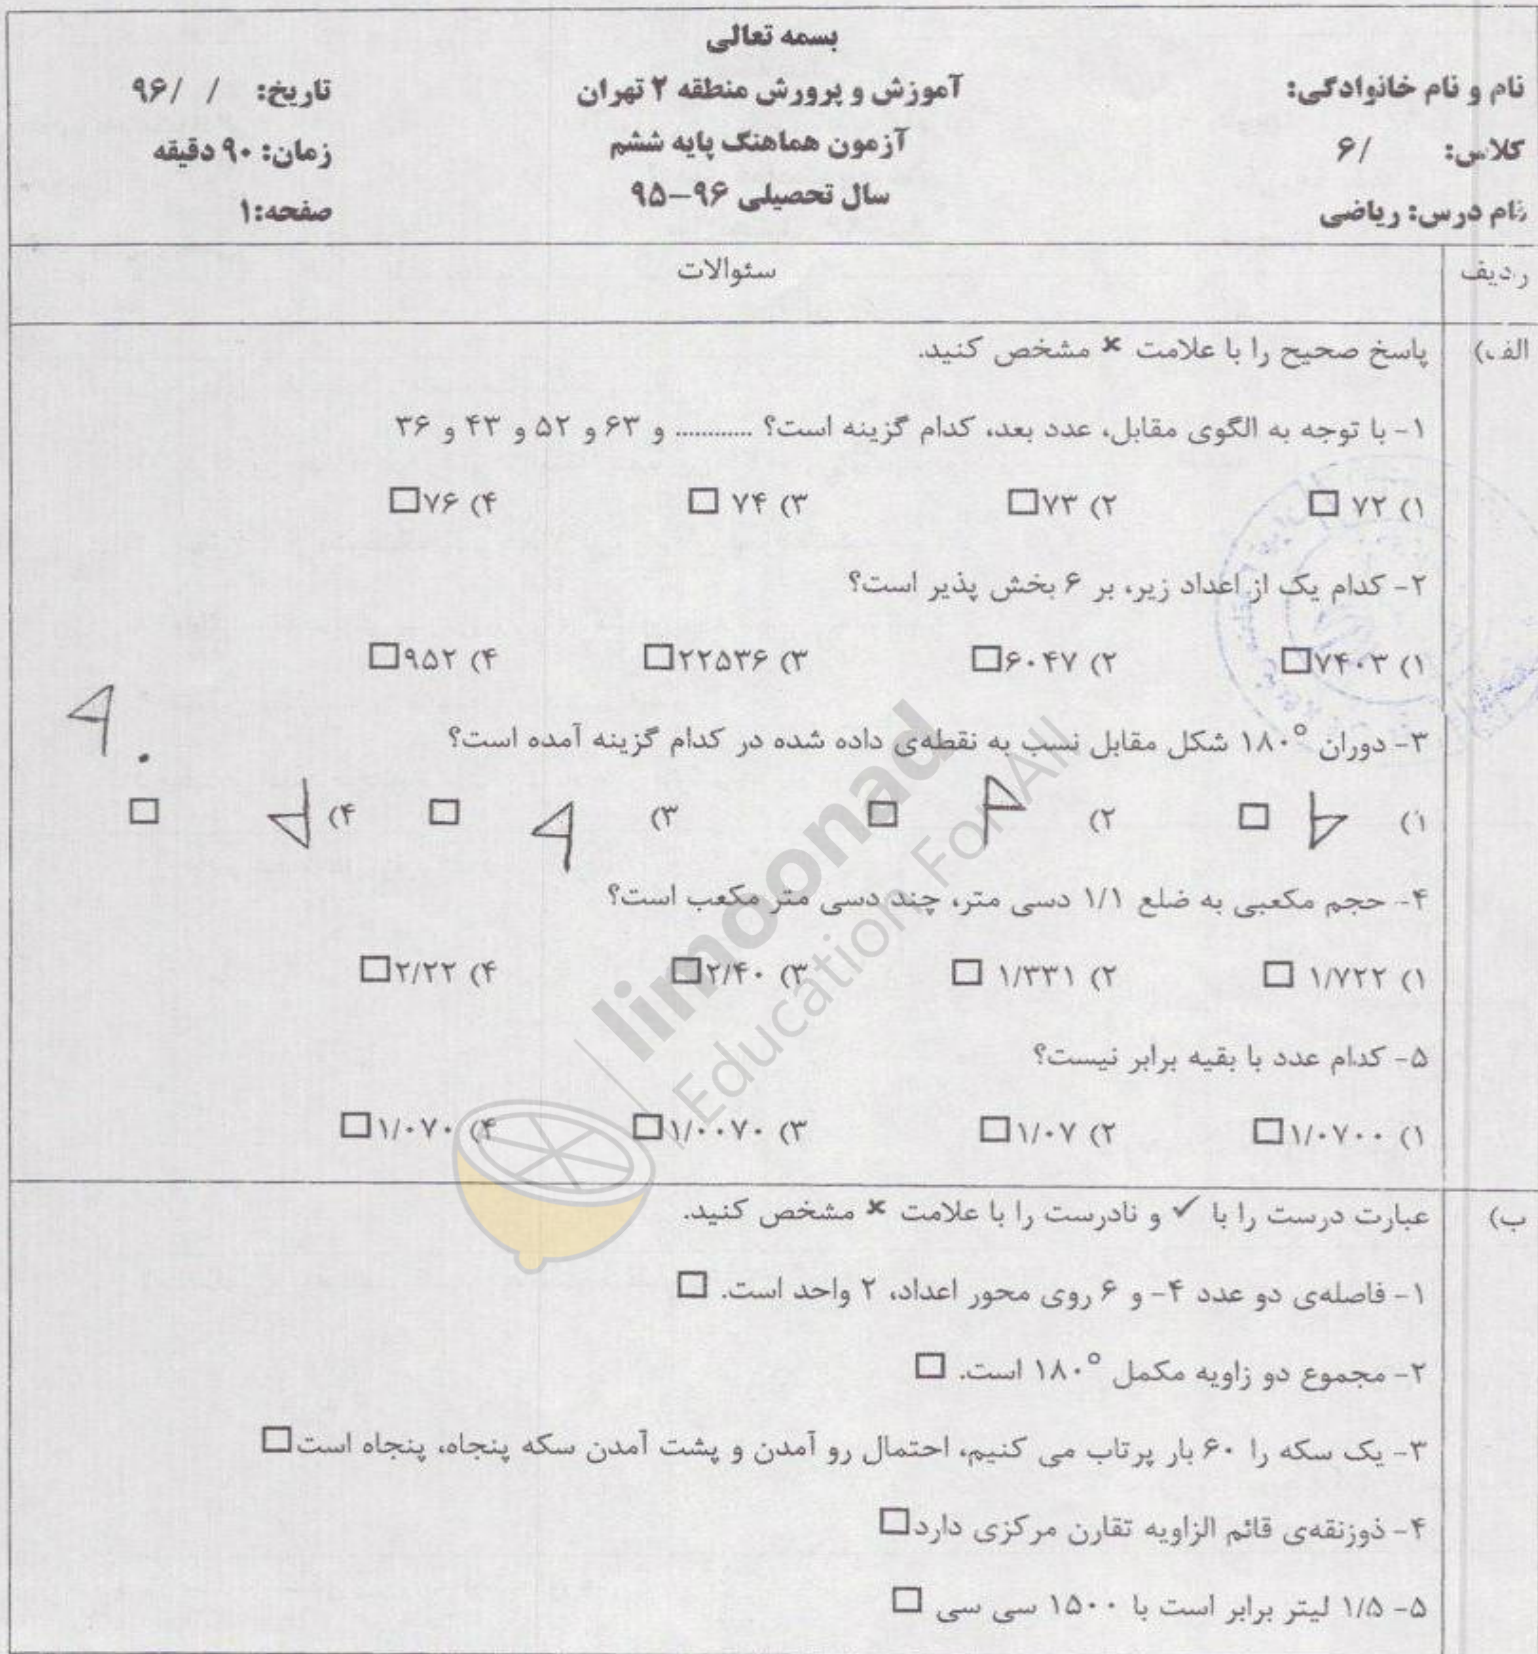 بسمه تعالی
نام و نام خانوادگی:
آموزش و پرورش منطقه ۲ تهران
تاریخ: / /۹۶
کلاس: /۶
آزمون هماهنگ پایه ششم
زمان: ۹۰ دقیقه
نام درس: ریاضی
سال تحصیلی ۹۶-۹۵
صفحه:۱
ردیف سئوالات
الف) پاسخ صحیح را با علامت × مشخص کنید.
۱- با توجه به الگوی مقابل، عدد بعد، کدام گزینه است؟ ............ و ۶۳ و ۵۲ و ۴۳ و ۳۶
۱) ۷۲ □ ۲) ۷۳ □ ۳) ۷۴ □ ۴) ۷۶ □
۲- کدام یک از اعداد زیر، بر ۶ بخش پذیر است؟
۱) ۷۴۰۳ □ ۲) ۶۰۴۷ □ ۳) ۲۲۵۳۶ □ ۴) ۹۵۲ □
۳- دوران ۱۸۰° شکل مقابل نسب به نقطه‌ی داده شده در کدام گزینه آمده است؟
۱) □ ۲) □ ۳) □ ۴) □
۴- حجم مکعبی به ضلع ۱/۱ دسی متر، چند دسی متر مکعب است؟
۱) ۱/۷۲۲ □ ۲) ۱/۳۳۱ □ ۳) ۲/۴۰ □ ۴) ۲/۲۲ □
۵- کدام عدد با بقیه برابر نیست؟
۱) ۱/۰۷۰۰ □ ۲) ۱/۰۷ □ ۳) ۱/۰۰۷۰ □ ۴) ۱/۰۷۰ □
ب) عبارت درست را با ✓ و نادرست را با علامت × مشخص کنید.
۱- فاصله‌ی دو عدد ۴- و ۶ روی محور اعداد، ۲ واحد است. □
۲- مجموع دو زاویه مکمل ۱۸۰° است. □
۳- یک سکه را ۶۰ بار پرتاب می کنیم، احتمال رو آمدن و پشت آمدن سکه پنجاه، پنجاه است □
۴- ذوزنقه‌ی قائم الزاویه تقارن مرکزی دارد □
۵- ۱/۵ لیتر برابر است با ۱۵۰۰ سی سی □
limoonad
Education For All